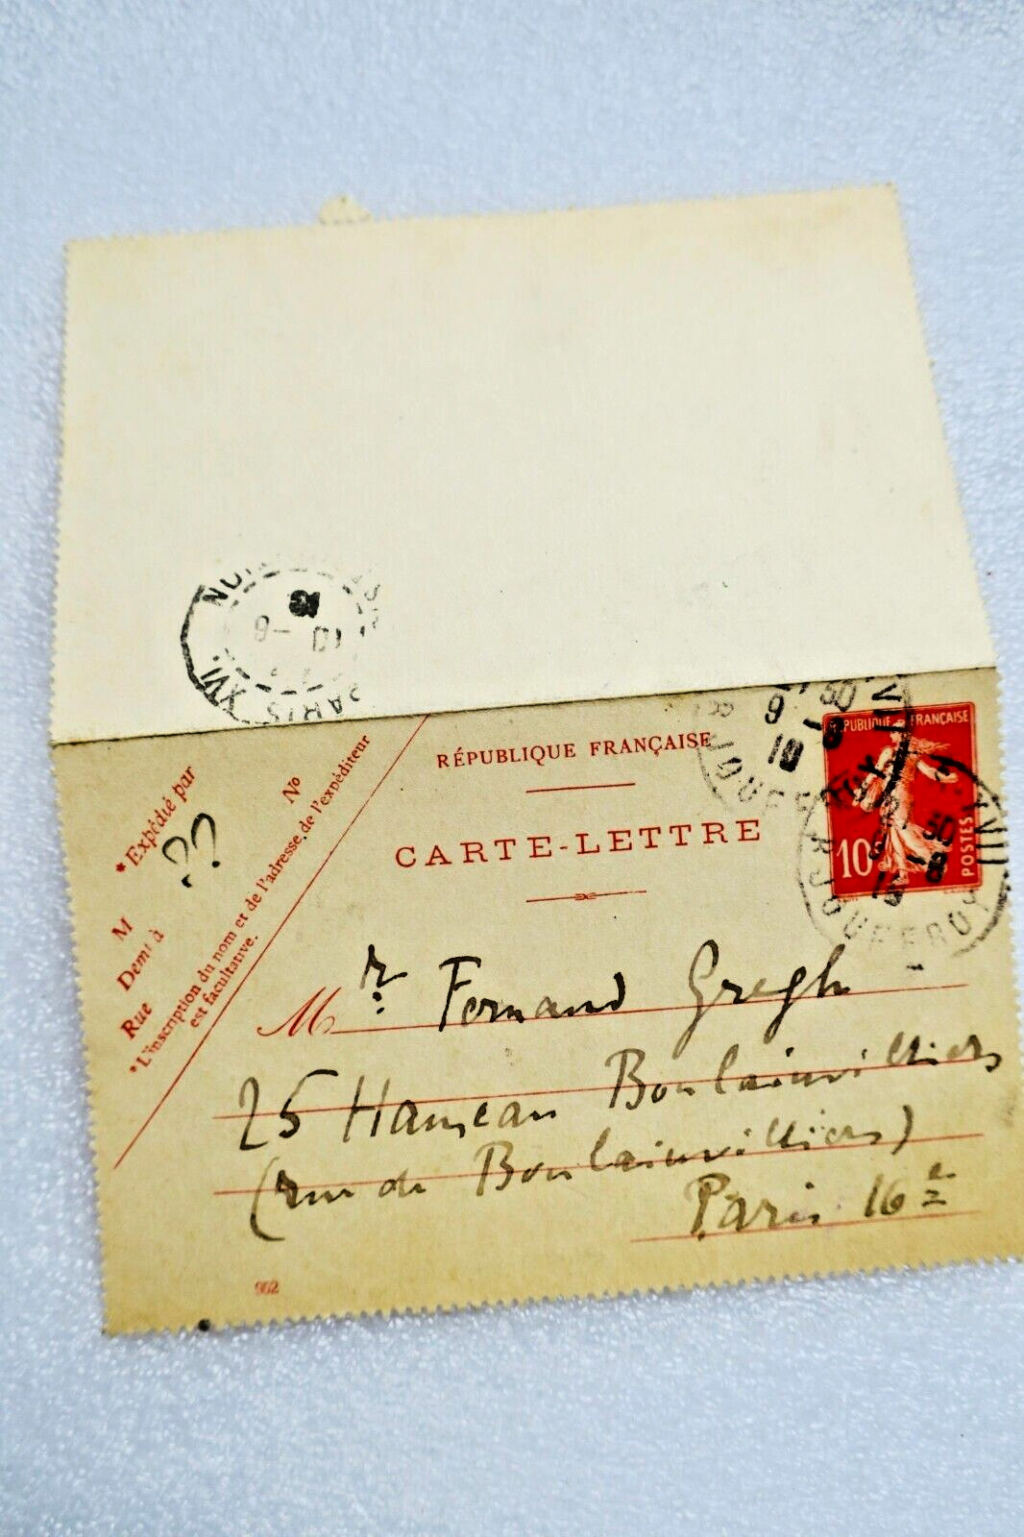 PARIS XVI
RÉPUBLIQUE FRANÇAISE
CARTE-LETTRE
RÉPUBLIQUE FRANÇAISE
10c
POSTES
R. JOUFFROY
* Expédié par
??
M
Demt à
Rue
No
*L'inscription du nom et de l'adresse de l'expéditeur
est facultative.
Mr Fernand Gregh
25 Hameau Boulainvilliers
(rue de Boulainvilliers)
Paris 16e
902